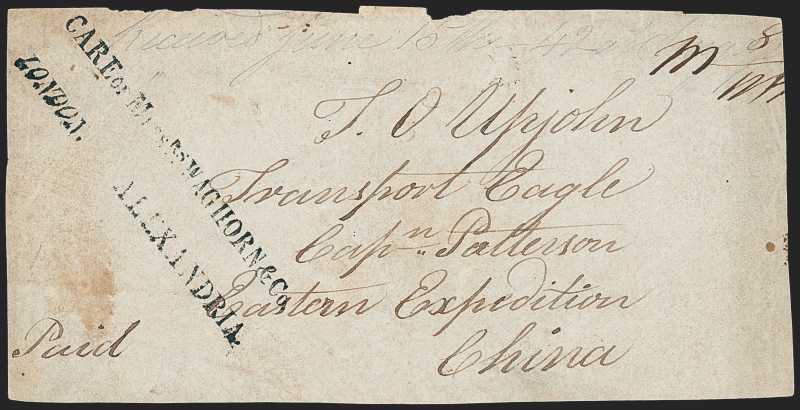 Received June 15th 42
CARE OF MESSRS WAGHORN & Co
LONDON. ALEXANDRIA.
T. O. Upjohn
Transport Eagle
Capn. Patterson
Eastern Expedition
China
Paid